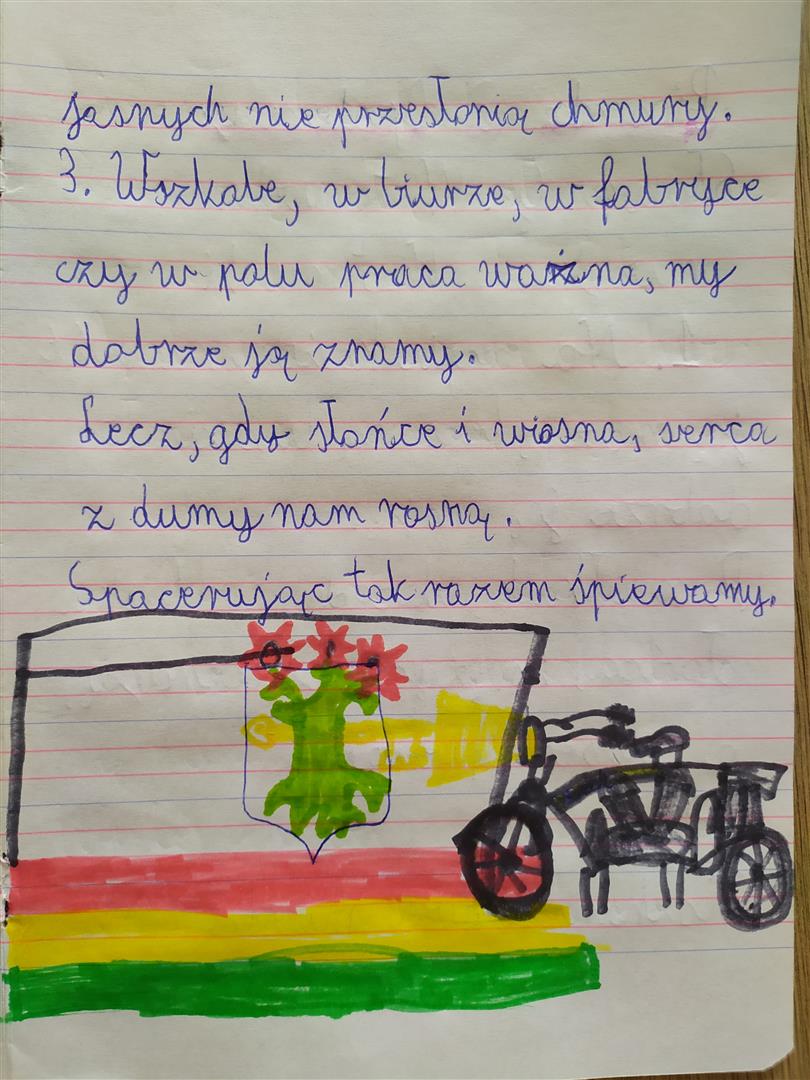 jasnych nie przesłonią chmury.
3. Wszkole, w biurze, w fabryce
czy w polu praca ważna, my
dobrze ją znamy.
Lecz, gdy słońce i wiosna, serca
z dumy nam rosną.
Spacerując tak razem śpiewamy.